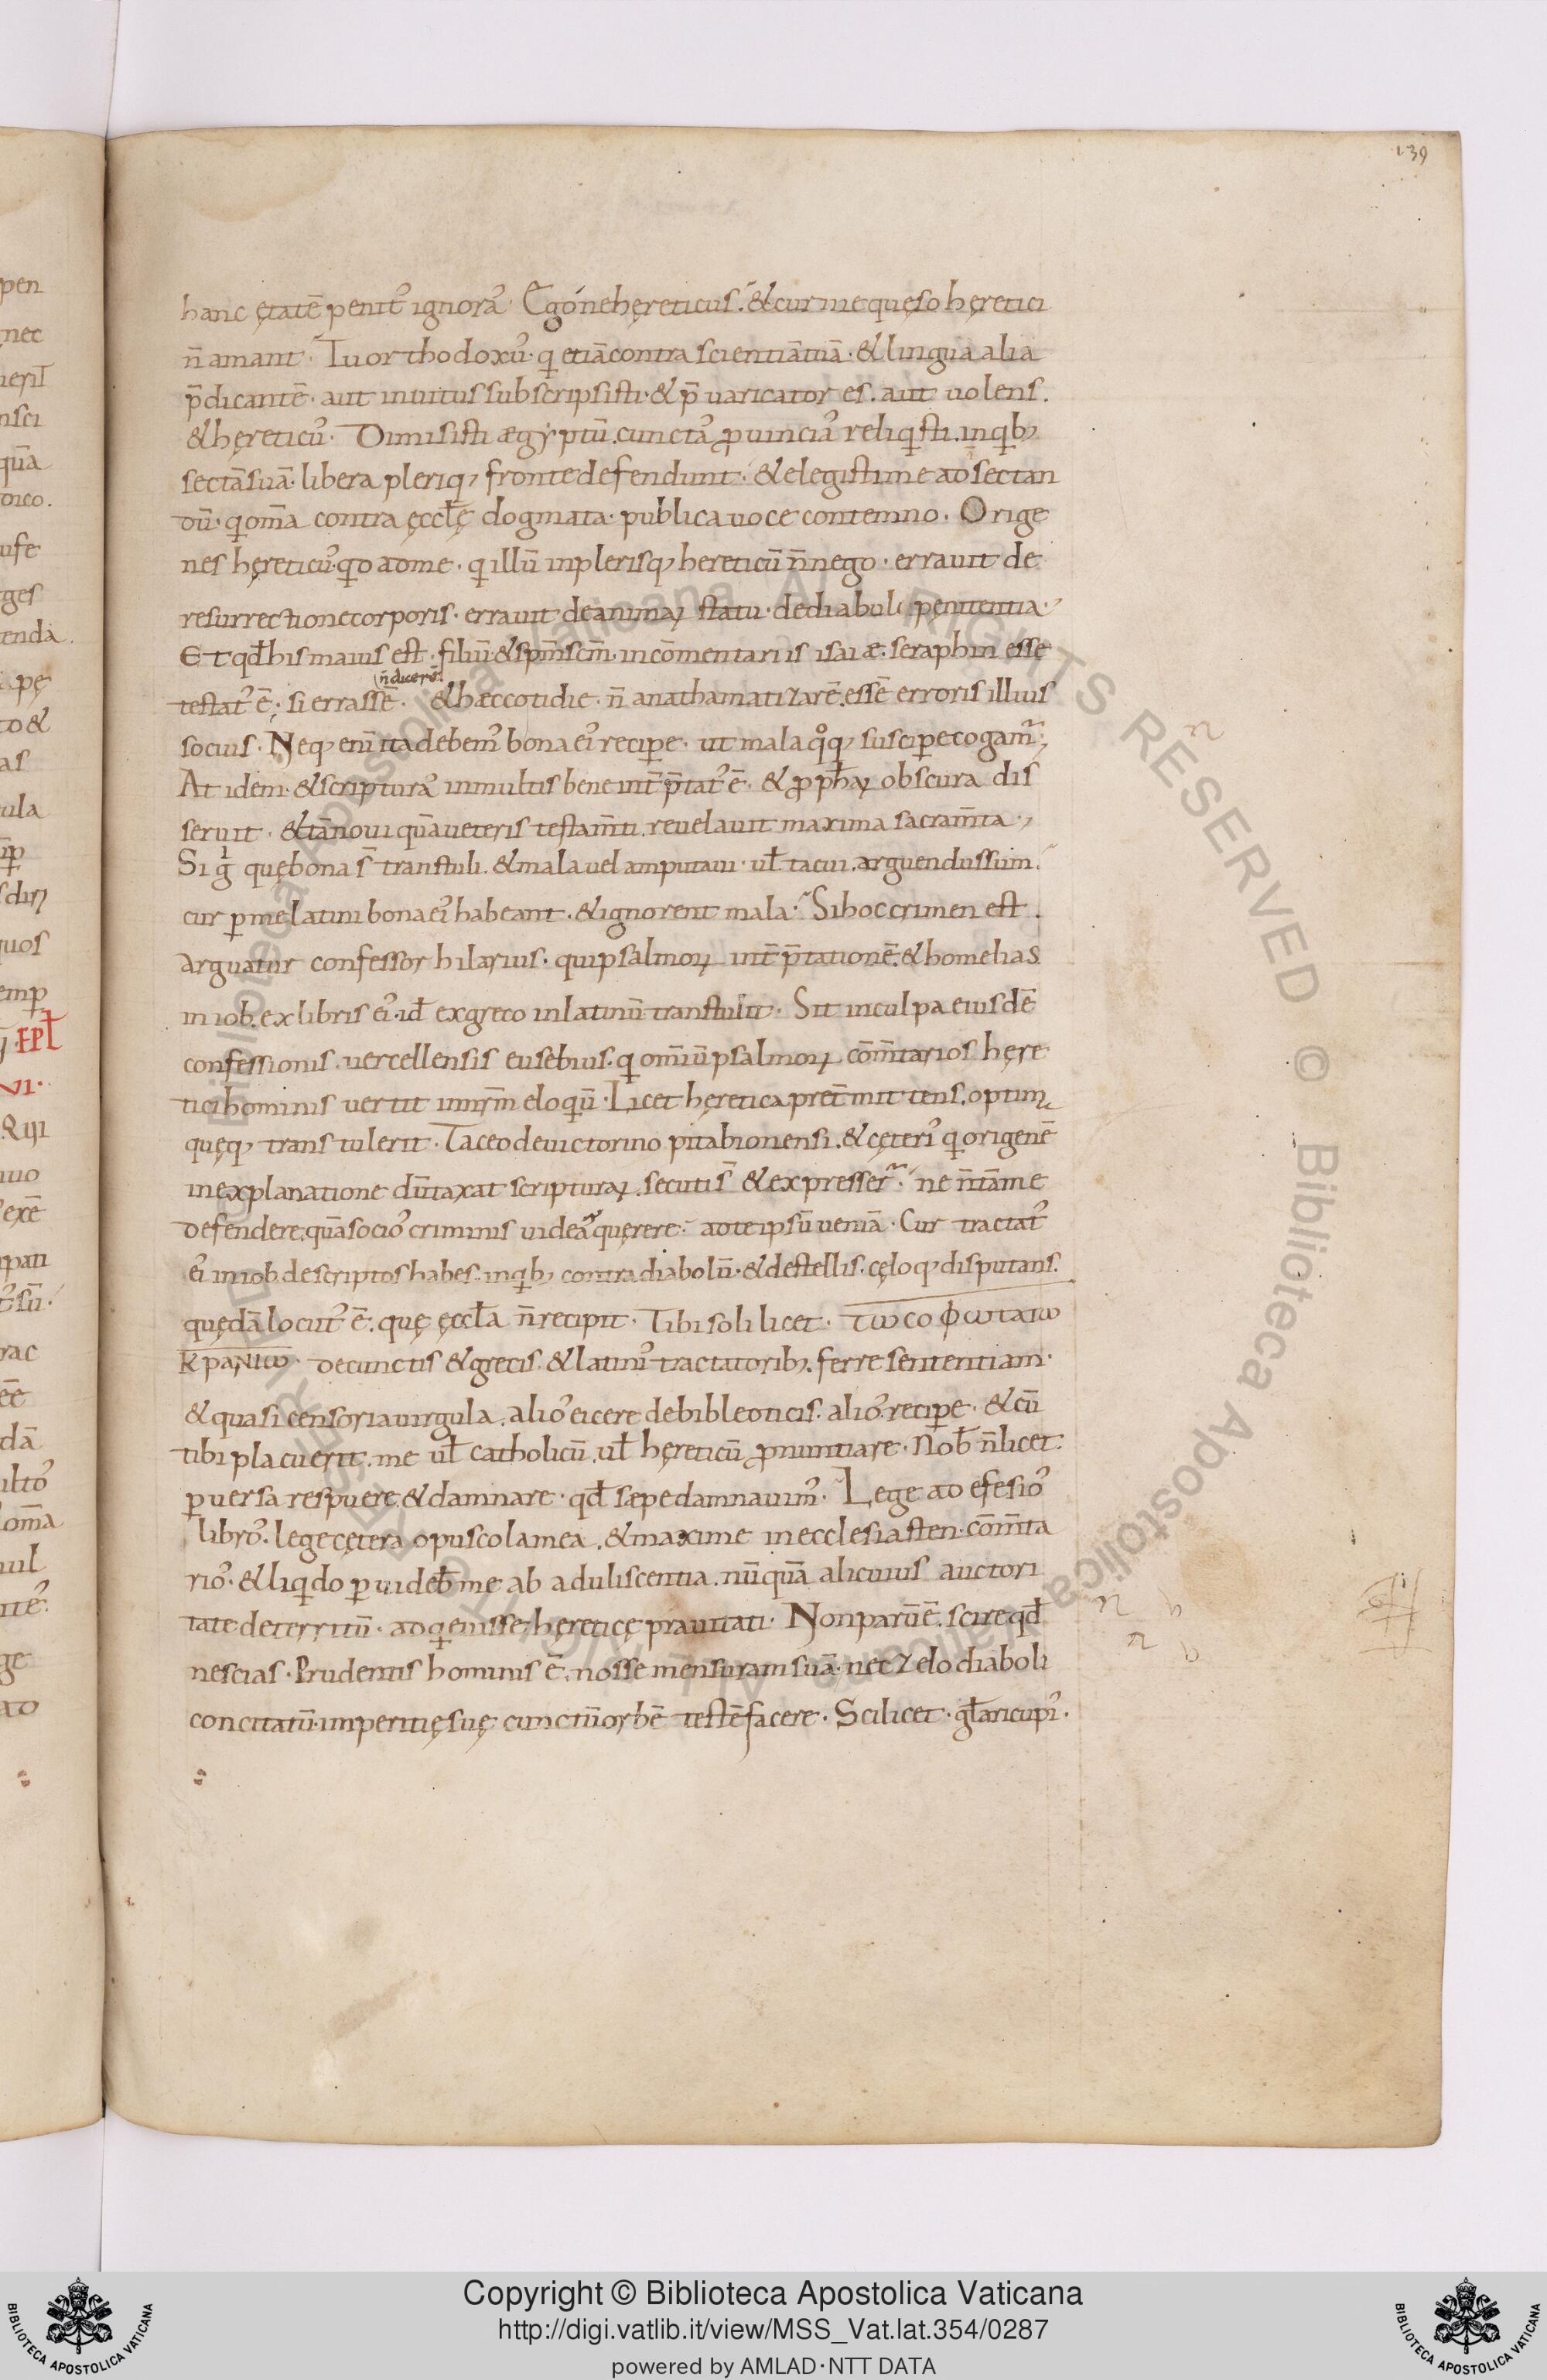 139
hanc ętatē penit᷒ ignora᷒. Egóne hęreticus. & cur me quęso hęretici
n̄ amant. Tu orthodoxu᷒. q̣ etiā contra scientiā tuā. & lingua alia
p̄dicantē. aut inuitus subscripsisti. & p̄uaricator es. aut uolens.
& hęreticu᷒. Dimisisti ægẏptū. cuncta᷒ ꝓuincia᷒ reliq̣sti. in q̣b;
sectā suā. libera pleriq; fronte defendunt. & elegisti me ad sectan
dū. q̣ om̄a contra ęccl̄ę dogmata. publica uoce contemno. Orige
nes hęreticu᷒. q̣d ad me. q̣ illū in plerisq; hereticū n̄ nego. errauit de
resurrectione corporis. errauit de animaꝝ statu. de diaboli pęnitentia.
Et qđ his maius est. filiū & sp̄m sc̄m. in cōmentariis isaiæ. seraphin esse
testat᷒ ē. si errassē. n̄ dicerē. & hæc cotidie. n̄ anathamatizarē. essē erroris illius
socius. Neq; enī ita debem᷒ bona ei᷒ recipe. ut mala q̊q; suscipe cogam̃.
At idem. & scriptura᷒ in multis bene int̄p̄tat᷒ ē. & ꝓph̄aꝝ obscura dis
seruit. & tā noui quā ueteris testam̄ti. reuelauit maxima sacram̄ta.
Si gͥ quę bona s̄ transtuli. & mala uel amputaui. ul̄ tacui. arguendus sum.
cur ꝑ me latini bona ei᷒ habeant. & ignorent mala. Si hoc crimen est.
arguatur confessor hilarius. qui psalmoꝝ int̄p̄tationē. & homelias
in iob. ex libris ei᷒. id̄ ex greco in latinū transtulit. Sit in culpa eiusdē
confessionis. uercellensis eusebius. q̣ om̄iū psalmoꝝ cōm̄tarios hęre
tici hominis uertit in nr̄m eloq̣ū. Licet hęretica pret̄mittens. optima
quęq; transtulerit. Taceo de uictorino pitabionensi. & cęteri᷒ q̣ origenē
in explanatione dūtaxat scripturaꝝ. secuti s̄ & expresser̃. ne n̄ tā me
defendere. quā socio᷒ criminis uidear quęrere. ad te ipsū ueniā. Cur tractat᷒
ei᷒ in iob. descriptos habes. in q̣b; contra diabolū. & de stellis. cęloq; disputans.
quędā locut᷒ ē. quę ęccl̄a n̄ recipit. Tibi soli licet. τω σοφωταιω
κρανιω. de cunctis & grecis. & latini᷒ tractatorib;. ferre sententiam.
& quasi censoria uirgula. alio᷒ eicere de bibleoticis. alio᷒ recipe. & cū
tibi placuerit. me ul̄ catholicū. ul̄ hęreticū ꝓnuntiare. Nob̄ n̄ licet.
ꝑuersa respuere. & damnare. qđ sæpe damnauim᷒. Lege ad efesio᷒
libro᷒. lege cętera opuscola mea. & maxime in ecclesiasten. cōm̄ta
rio᷒. & liq̣do ꝑuideb̄ me ab aduliscentia. nūquā alicuius auctori
tate deterritū. adq̣euisse hęreticę prauitati. Non parū ē. scire qđ
nescias. Prudentis hominis ē. nosse mensuram suā. nec zelo diaboli
concitatū. imperitię suę cunctū orbē testē facere. Scilicet. gl̄ari cupi᷒.
Copyright © Biblioteca Apostolica Vaticana
http://digi.vatlib.it/view/MSS_Vat.lat.354/0287
powered by AMLAD·NTT DATA